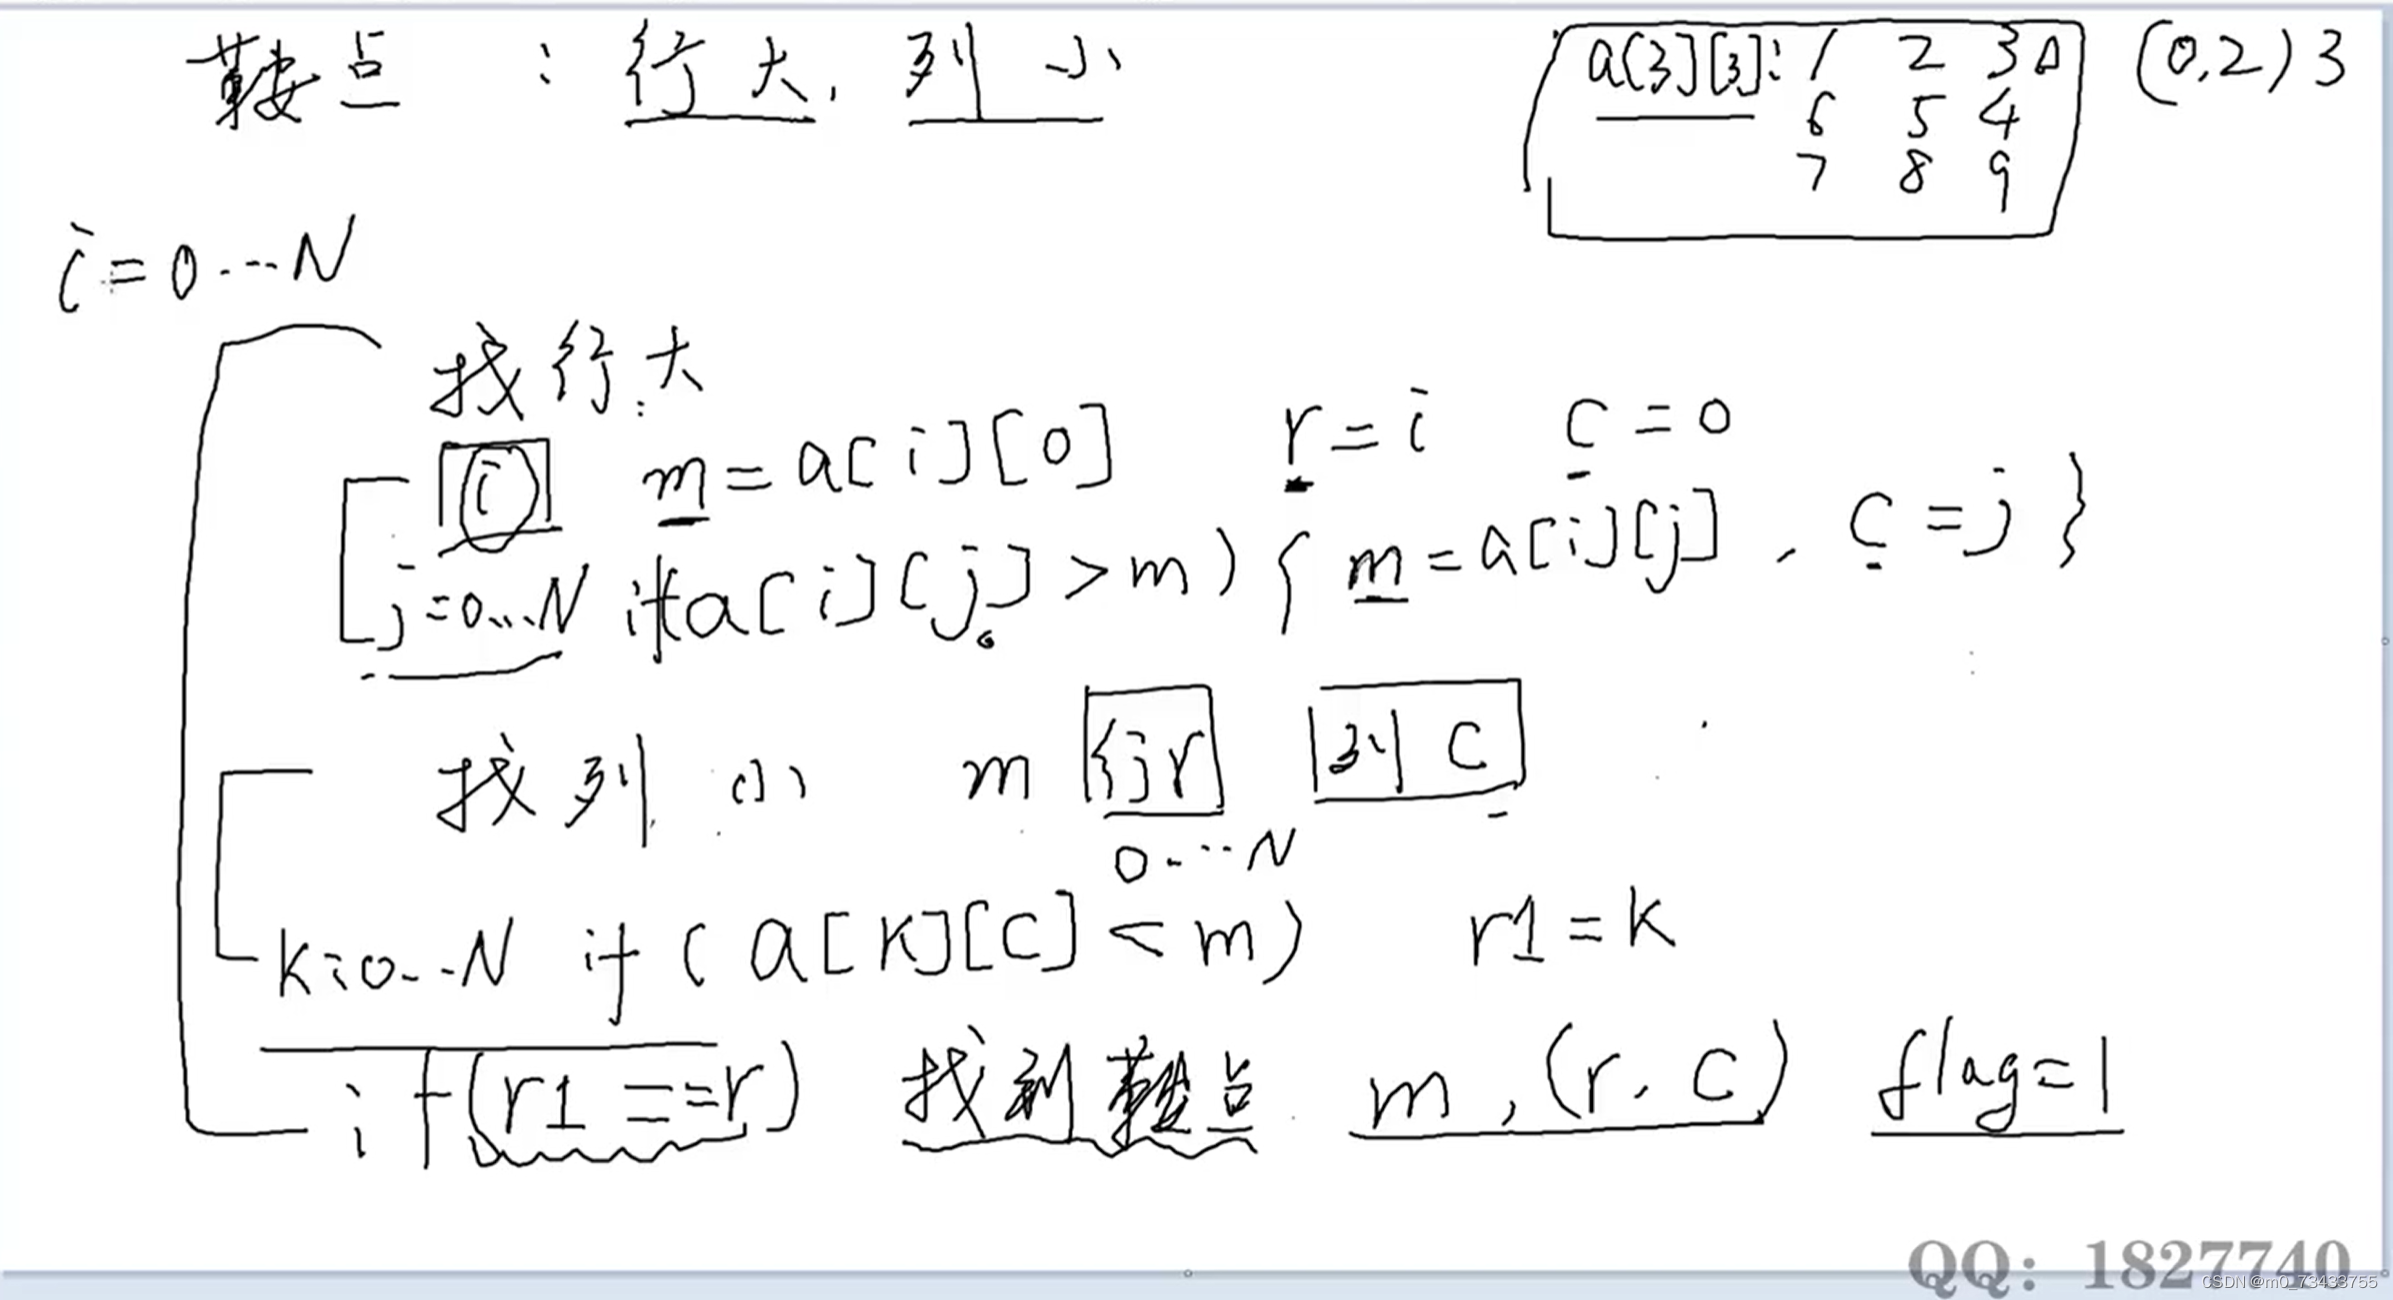 鞍点：行大，列小 a[3][3]: 1 2 3 △ (0,2) 3
6 5 4
7 8 9
i=0...N
找行大
i m=a[i][0] r=i c=0
j=0...N if a[i][j]>m) { m=a[i][j], c=j }
找列小 m 行r 列c
0...N
k=0...N if (a[k][c]<m) r1=k
if(r1==r) 找到鞍点 m, (r,c) flag=1
QQ: 1827740
CSDN @m0_73433755